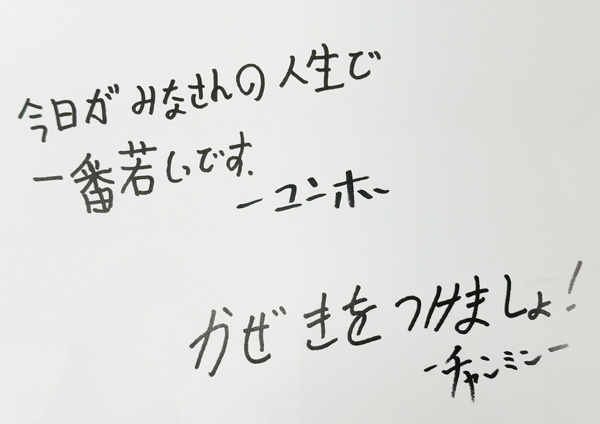 今日がみなさんの人生で
一番若いです.
ーユンホー
かぜきをつけましょ!
-チャンミンー